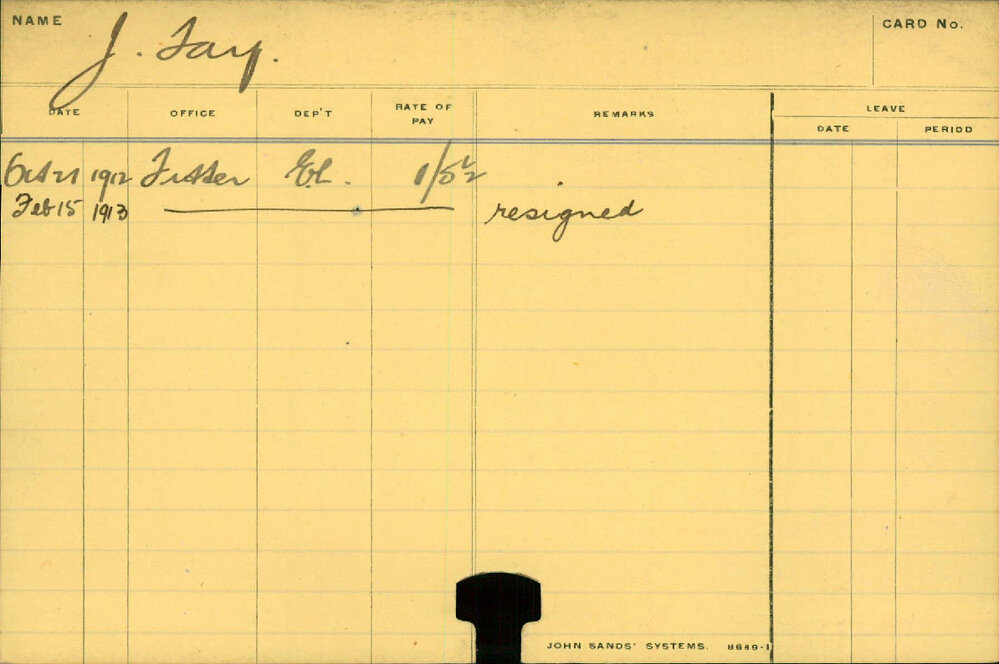 NAME J. Fay. CARD No.
DATE OFFICE DEP'T RATE OF PAY REMARKS LEAVE
DATE PERIOD
Oct 21 1912 Fitter El. 1/5½
Feb 15 1913 resigned
JOHN SANDS' SYSTEMS. 8689-1